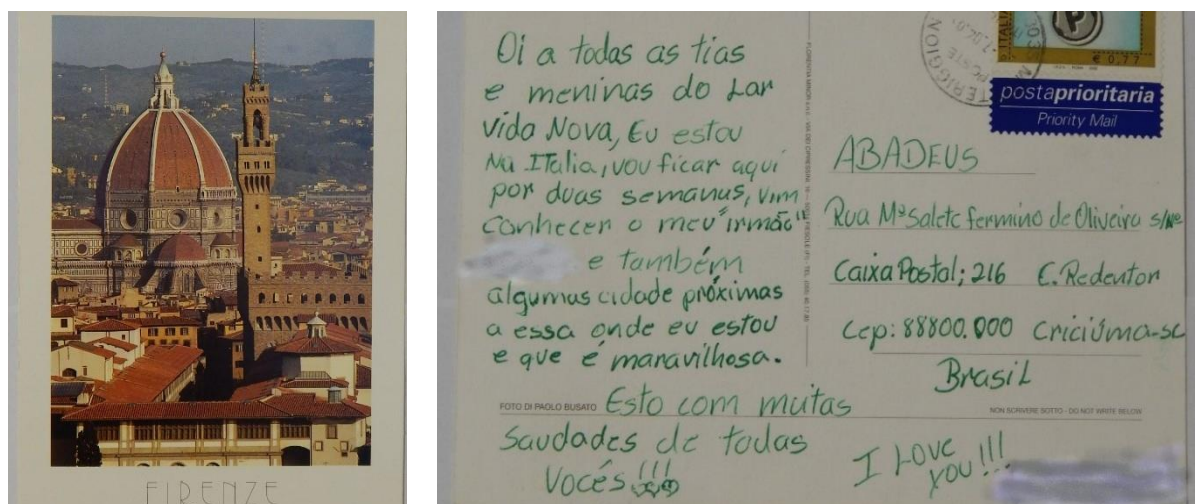 FIRENZE
Oi a todas as tias
e meninas do Lar
Vida Nova, Eu estou
Na ITalia, vou ficar aqui
por duas semanas, vim
conhecer o meu "irmão"
e também
algumas cidade próximas
a essa onde eu estou
e que é maravilhosa.
Esto com muitas
Saudades de todas
Vocês!!!
FOTO DI PAOLO BUSATO
ITALIA
€ 0,77
postaprioritaria
Priority Mail
ABADEUS
Rua Mª Salete fermino de Oliveira s/Nº
Caixa Postal; 216 C. Redentor
Cep: 88800.000 Criciúma-SC
Brasil
NON SCRIVERE SOTTO - DO NOT WRITE BELOW
I Love
You!!!